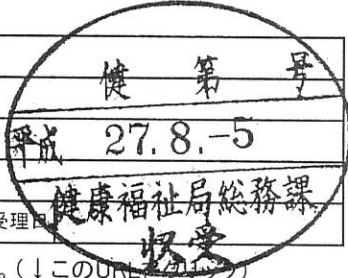 健 第 号
平成 27.8.-5
健康福祉局総務課
受理日
収受
。(↓このURL